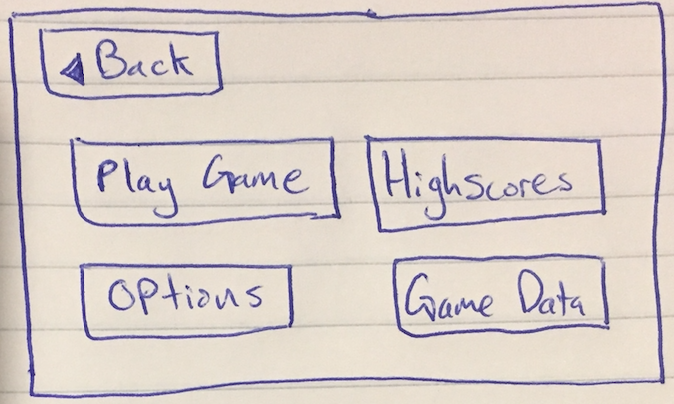 Back
Play Game
Highscores
Options
Game Data